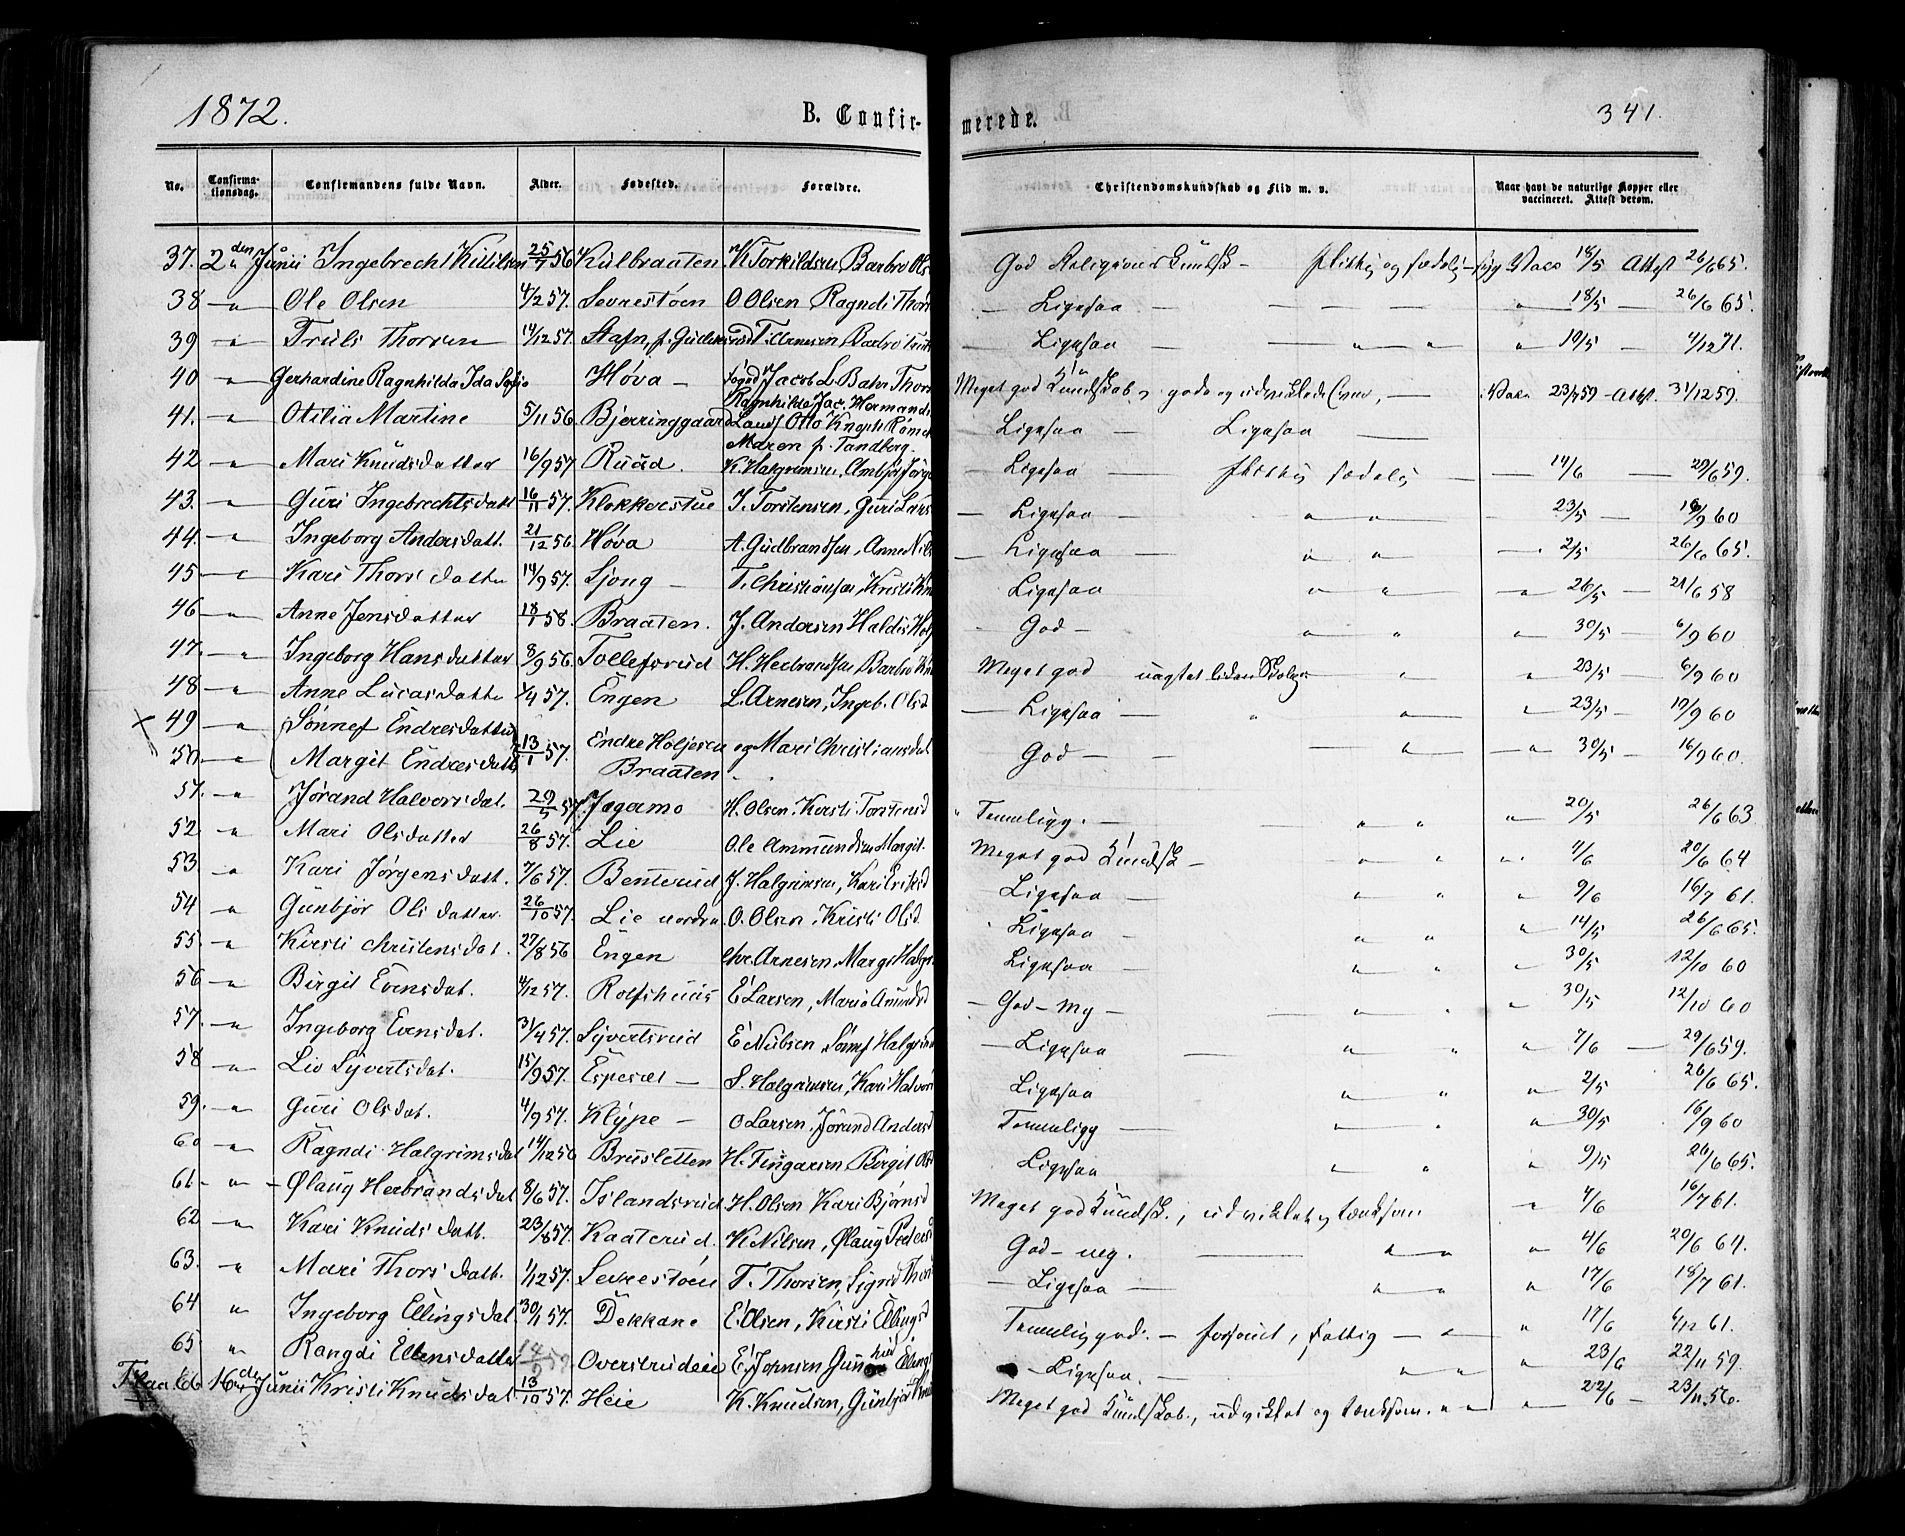 1872.
B. Confirmerede.
341.
No. Confirmationsdag. Confirmandens fulde Navn. Alder. Fødested. Forældre. Christendomskundskab og Flid m. v. Naar havt de naturlige Kopper eller vaccineret. Attest derom.
37. 2den Junii Ingebrecht 25/7 56 Kulbraaten K Torkildsen Barbro Ols God Religions Kundsk - flittig og sædelig Vacc 18/5 Attest 26/6 65.
38 - " Ole Olsen 4/2 57. Sevrestøen O Olsen Ragndi Thors - Ligesaa " 18/5 - 26/6 65.
39 - " Truls Thorsen 14/12 57. T. Arnesen, Barbro - Ligesaa - " " " 19/5 - 4/12 71.
40 - " Gerhardine Ragnhilda Ida Sofie Høva - Foged Jacob L. Bahr Thora Ragnhilde Jac. Hermand Meget god Kundskab, gode og udviklede Evner, - Vacc 23/7 59 - Attst. 31/12 59.
41. - " Otilia Martine 5/11 56 Bjerringgaard Otto Knoph Rømck Maren f. Tandberg. Ligesaa - Ligesaa -
42 - " Mari Knudsdatter 16/9 57 Ruud. K. Halgrimsen, Ambjør Jørge - Ligesaa - flittig sædelig - 14/6 - 29/6 59.
43. - " Guri Ingebrechtsdatt 16/11 57. Klokkerstue I. Torstensen, Guri Lars - Ligesaa - " " 23/5 - 19/9 60
44. - " Ingeborg Andersdatt. 21/12 56. Høva A. Gudbrandsen, Anne Nils - Ligesaa - " " 2/5 26/6 65.
45 - " Kari Thorsdatter 14/9 57. Sjong - T. Christiansen, Kristi Ligesaa " " " 26/5 - 21/6 58
46 - " Anne Jensdatter 18/1 58. Braaten. J. Andersen Haldis Holj - God - " " " 30/5 - 6/9 60
47. - " Ingeborg Hansdatter 8/9 56. Tollefsrud H. Herbrandsen Barbro Meget god uagtet liden Skolegang " " 23/5 - 6/9 60
48 - " Anne Lucasdatte 57. Engen L. Arnesen, Ingeb. Olsd - Ligesaa - " " " 23/5 - 19/9 60
x 49 - " Sønnef Endresdatter
50 - " Margit Endresdatt 13/1 57. Endre Holjesen og Mari Christiansdat Braaten God - - - " - " 30/5 - 16/9 60.
51. - " Jørand Halvorsdat. 29/5 57. Jegermo H. Olsen. Kirsti Torstensd Temmeligg. - " " " 20/5 26/6 63
52 " Mari Olsdatter 26/8 57. Lie Ole Ammundsen Margit. Meget god Kundsk - " " " 7/6 20/6 64
53. " Kari Jørgensdatt. 7/6 57. Benterud J. Halgrimsen, Kari Eriksd - Ligesaa - " " " 9/6 16/7 61.
54 " Gunbjør Olsdatter. 26/10 57. Lie nordre O. Olsen, Kristi Olsd. Ligesaa - " " " 14/5 26/6 65.
55. " Kirsti Christensdat. 27/8 56 Engen Chr. Arnesen, Margit Halgr Ligesaa - " " 30/5 12/10 60
56 - " Birgit Evensdat. 4/12 57. Rolfshuus E Larsen, Maria Amundsd - God - mg - " " - " 30/5 12/10 60
57. - " Ingeborg Evensdat. 57. Syvertsrud E Nubsen, Sønnef Halgrim - Ligesaa - " " " 7/6 - 29/6 59.
58 - " Liv Syvertsdat. 15/9 57. Espeset - S. Halgrimsen, Kari Halvor Ligesaa " " " 2/5 26/6 65.
59. - " Guri Olsdat. 4/9 57. Klype - O Larsen, Jørand Andersd Temmeligg - " " " 30/5 16/9 60
60 - " Ragndi Halgrimsdat 14/12 56 Brusletten H. Fingarsen Birgit Ols Ligesaa " " " 9/5 26/6 65.
61 - " - Ølaug Herbrandsdat 8/6 57. Islandsrud H. Olsen Kari Bjørnsd Meget god Kundsk., udviklet og tænksom " 4/6 16/7 61.
62 - " Kari Knudsdatt. 23/8 57. Kaaterud. K Nilsen, Ølaug Peders God - mg. - " " " 4/6 20/6 64.
63. " Mari Thorsdatt. 1/12 57. Sevrestøen T. Thorsen, Sigrid Thor - Ligesaa - " " " 17/6 18/7 61.
64 " Ingeborg Ellingsdat 30/1 57. Dekkane E. Olsen, Kirsti Ellingsd Temmelig god. - forsømt, fattig - " " 17/6 61.
65 " Rangdi Ellensdatter Overstrudeie E. Johnsen Gunhild Elling - Ligesaa. - " " " 23/6 22/11 59.
Flaa 66 16de Junii Kristi Knudsdat 13/10 57. Heie K. Knudsen, Gunbjør Knu Meget god Kundskab, udviklet og tænksom. " " " 22/6 - 23/11 56.